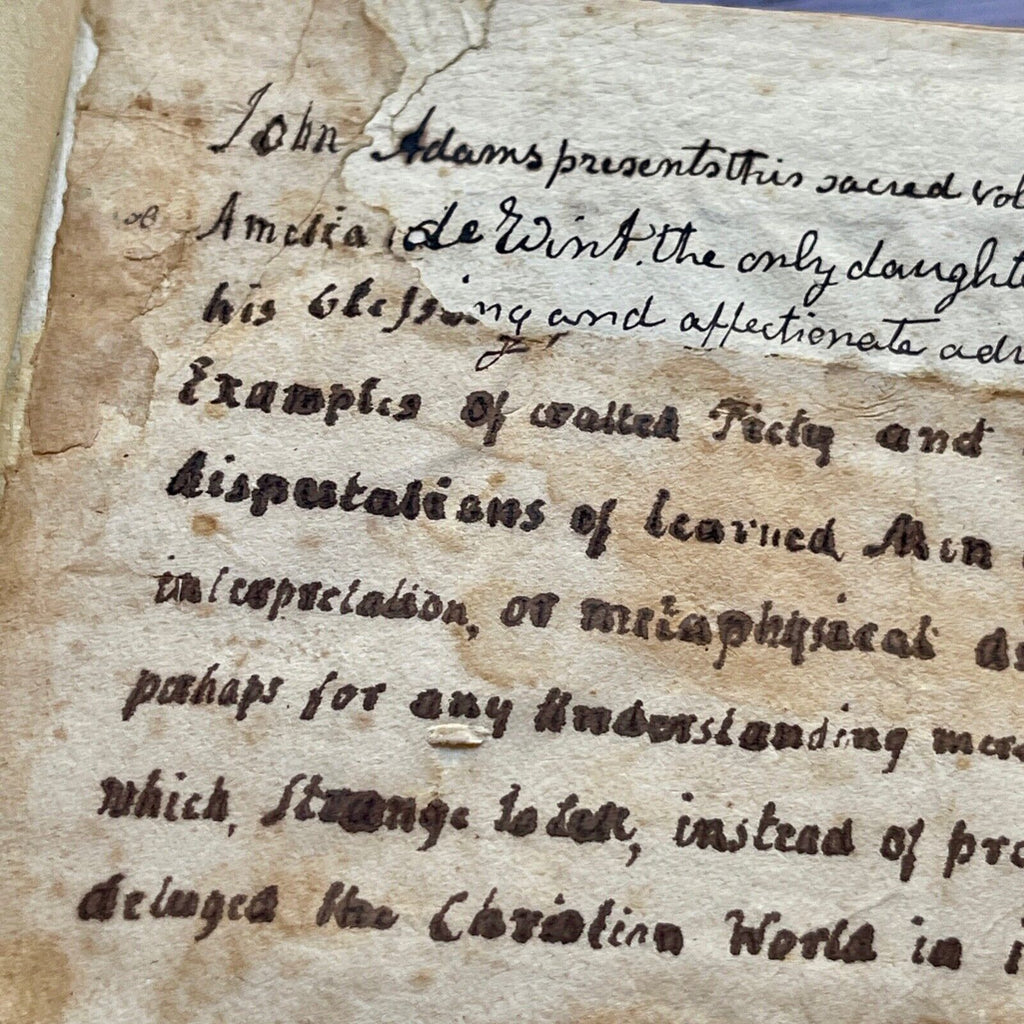 John Adams presents this sacred vol
Amelia de Wint. the only daughte
his blessing and affectionate adv
Examples of exalted Piety and
disputations of learned Men
interpretation, or metaphysical
perhaps for any Understanding mere
which, Strange to tell, instead of pro
deluged the Christian World in